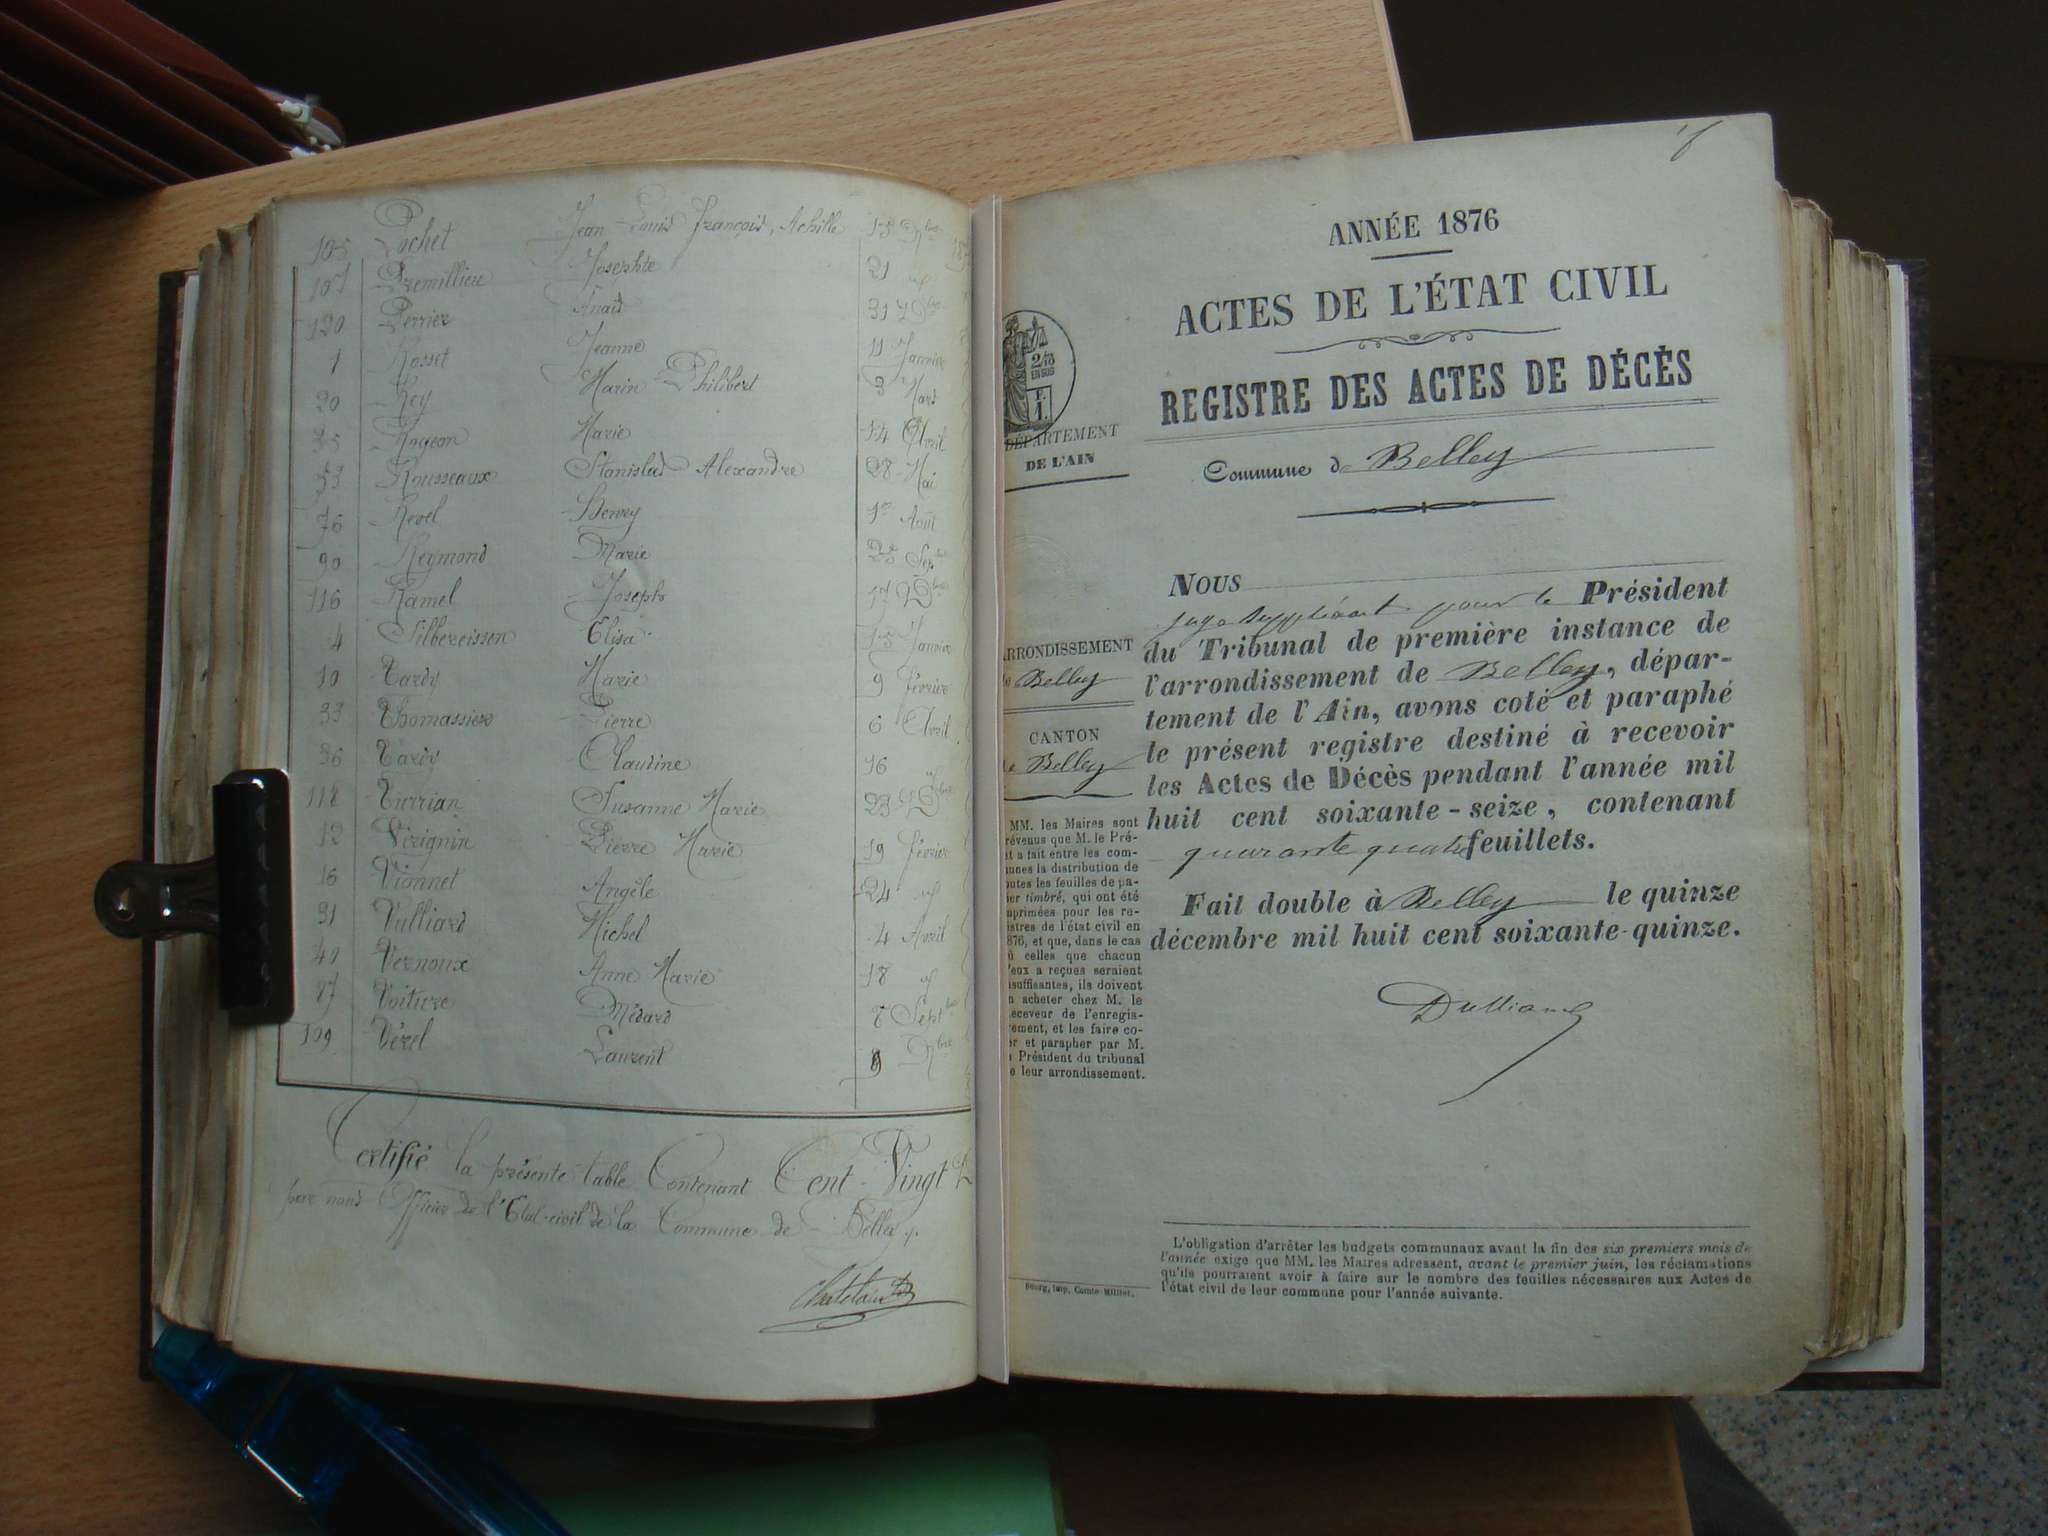 105 Pochet Jean Louis François, Achille 15 9bre
107 Premillieu Josephte 21 id
120 Perrier Anaïs 31 Xbre
1 Rosset Jeanne 11 Janvier
20 Rey Marin Philibert 3 Mars
35 Rogeon Marie 14 Avril
53 Rousseaux Stanislas Alexandre 28 Mai
76 Revel Benoy 1er Août
90 Reymond Marie Sept
116 Ramel Joseph 17 Xbre
4 Silbereisson Elisa 15 Janvier
10 Tardy Marie 9 février
33 Thomassero Pierre 6 Avril
36 Tardy Claudine 16 id
118 Tierrian Susanne Marie 23 Xbre
12 Virignin Pierre Marie 19 février
16 Vionnet Angèle 24 id
31 Vulliard Michel 4 Avril
40 Vernoux Anne Marie 18 id
87 Voiture Médard 7 Septbre
109 Vézel Laurent 9 9bre
Certifié la présente table Contenant Cent Vingt
par nous Officier de l'Etat-civil de la Commune de Belley.
Chatelain
ANNÉE 1876
ACTES DE L'ÉTAT CIVIL
REGISTRE DES ACTES DE DÉCÈS
2/10
EN SUS
DÉPARTEMENT
DE L'AIN
Commune de Belley
NOUS
juge suppléant pour le Président
du Tribunal de première instance de
l'arrondissement de Belley, dépar-
tement de l'Ain, avons coté et paraphé
le présent registre destiné à recevoir
les Actes de Décès pendant l'année mil
huit cent soixante-seize, contenant
quarante quatre feuillets.
Fait double à Belley le quinze
décembre mil huit cent soixante-quinze.
ARRONDISSEMENT
de Belley
CANTON
de Belley
MM. les Maires sont
révenus que M. le Pré-
t a fait entre les com-
unes la distribution de
outes les feuilles de pa-
ier timbré, qui ont été
mprimées pour les re-
istres de l'état civil en
876, et que, dans le cas
ù celles que chacun
'eux a reçues seraient
nsuffisantes, ils doivent
n acheter chez M. le
eceveur de l'enregis-
rement, et les faire co-
er et parapher par M.
e Président du tribunal
e leur arrondissement.
L'obligation d'arrêter les budgets communaux avant la fin des six premiers mois de
l'année exige que MM. les Maires adressent, avant le premier juin, les réclamations
qu'ils pourraient avoir à faire sur le nombre des feuilles nécessaires aux Actes de
l'état civil de leur commune pour l'année suivante.
Bourg, imp. Comte-Milliet.